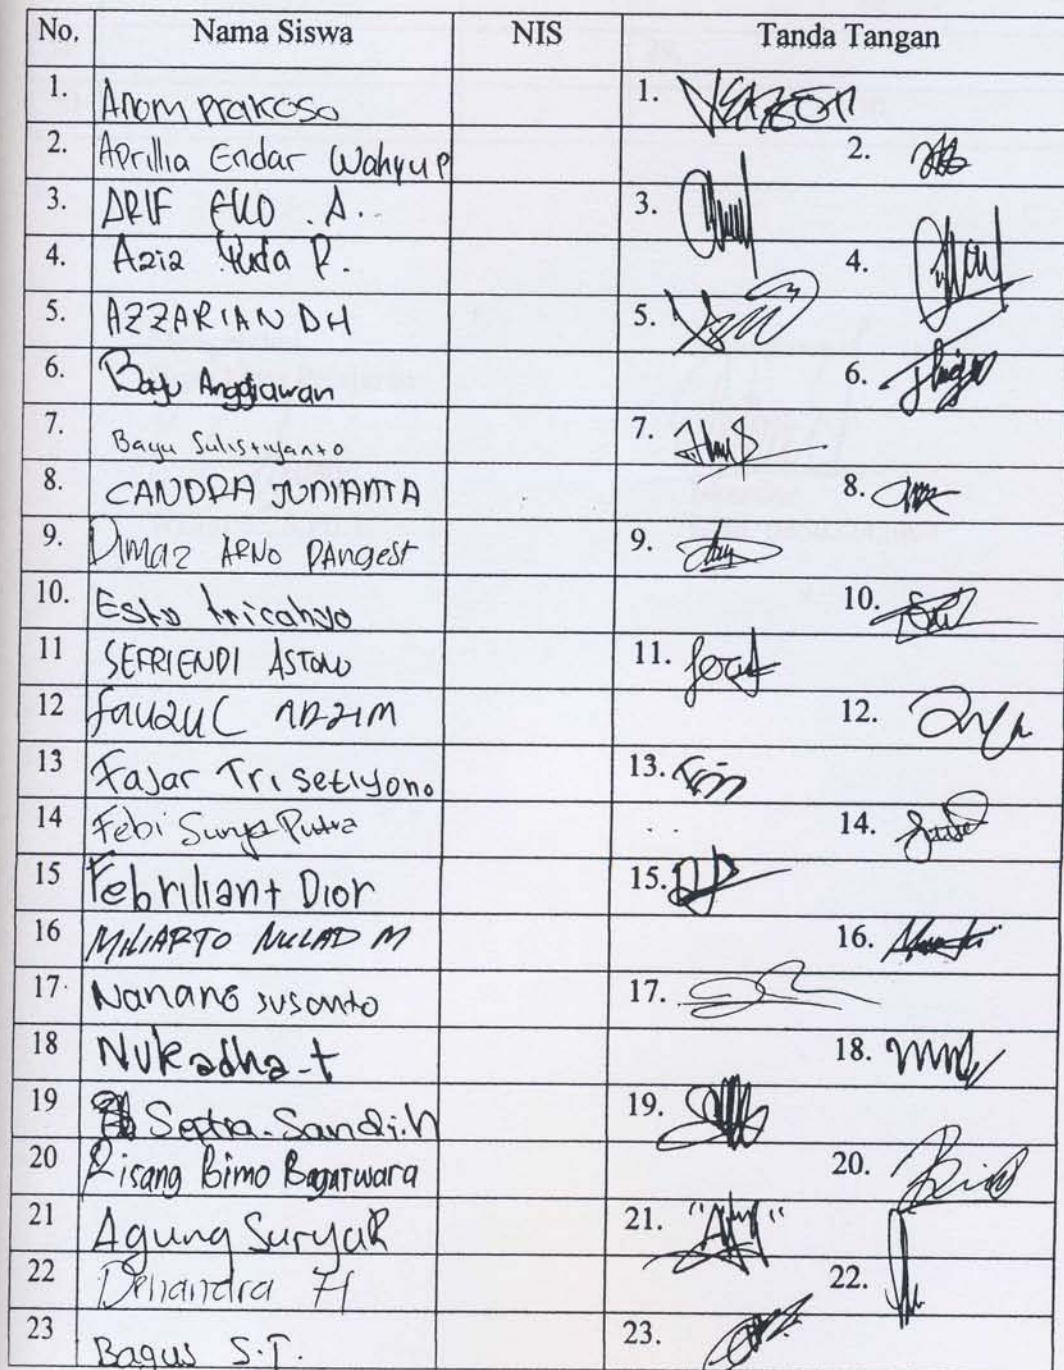 No. Nama Siswa NIS Tanda Tangan
1. Anom prakoso 1.
2. Aprillia Endar Wahyu P 2.
3. ARIF EKO . A. 3.
4. Aziz Yuda P. 4.
5. AZZARIAN DH 5.
6. Bayu Anggiawan 6.
7. Bayu Sulistiyanto 7.
8. CANDRA JUNIANTA 8.
9. Dimaz ARNO PAngest 9.
10. Esto tricahyo 10.
11 SEFRIENDI ASTONO 11.
12 fauzul ADZIM 12.
13 Fajar Tri setiyono 13.
14 Febi Surya Putra 14.
15 Febriliant Dior 15.
16 MILIARTO M 16.
17. Nanang susanto 17.
18 18.
19 Septra. Sandi.N 19.
20 Risang Bimo Bagarwara 20.
21 Agung Surya R 21.
22 Denandra H 22.
23 Bagus S.T. 23.